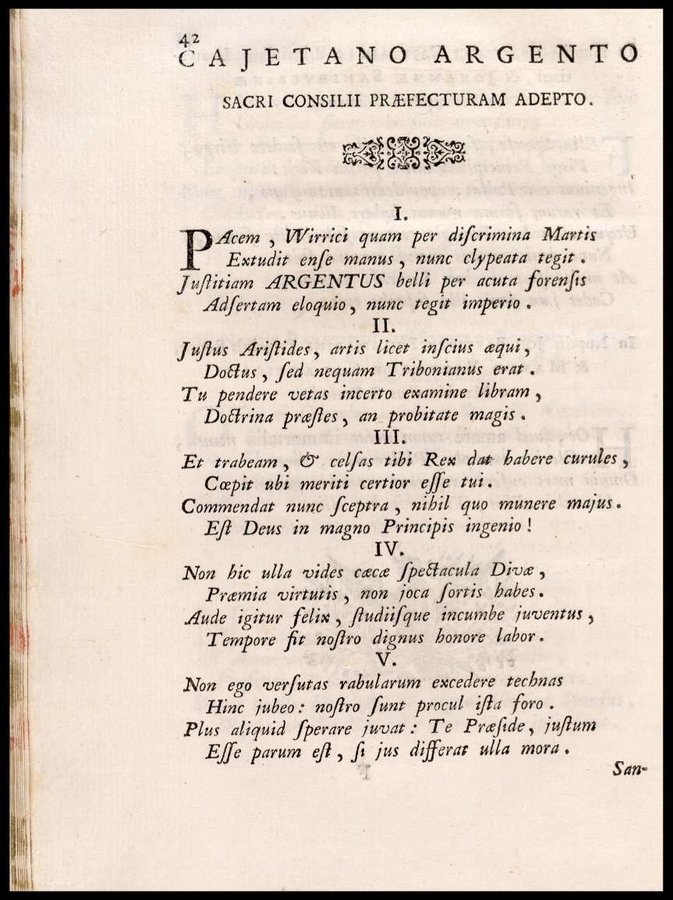 42
CAJETANO ARGENTO
SACRI CONSILII PRÆFECTURAM ADEPTO.
I.
PAcem, Wirrici quam per diſcrimina Martis
Extudit enſe manus, nunc clypeata tegit.
Juſtitiam ARGENTUS belli per acuta forenſis
Adſertam eloquio, nunc tegit imperio.
II.
Juſtus Ariſtides, artis licet inſcius æqui,
Doctus, ſed nequam Tribonianus erat.
Tu pendere vetas incerto examine libram,
Doctrina præſtes, an probitate magis.
III.
Et trabeam, & celſas tibi Rex dat habere curules,
Cœpit ubi meriti certior eſſe tui.
Commendat nunc ſceptra, nihil quo munere majus.
Eſt Deus in magno Principis ingenio!
IV.
Non hic ulla vides cæcæ ſpectacula Divæ,
Præmia virtutis, non joca ſortis habes.
Aude igitur felix, ſtudiiſque incumbe juventus,
Tempore fit noſtro dignus honore labor.
V.
Non ego verſutas rabularum excedere technas
Hinc jubeo: noſtro ſunt procul iſta foro.
Plus aliquid ſperare juvat: Te Præſide, juſtum
Eſſe parum eſt, ſi jus differat ulla mora.
San-